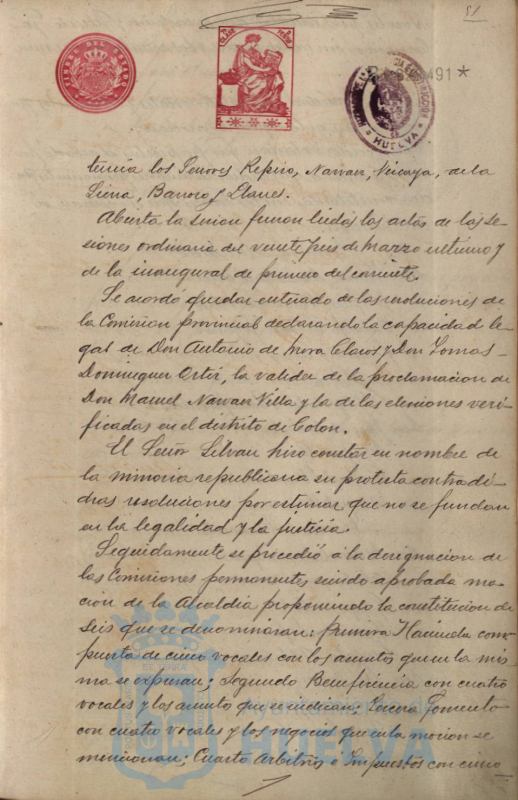 51
TIMBRE DEL ESTADO
HUELVA
491 *
tencia los Señores Repiso, Narvaez, Vizcaya, de la
Sierra, Barroso y Llanes.
Abierta la sesion fueron leidas las actas de las se-
siones ordinaria del veinte seis de Marzo ultimo y
de la inaugural de primero del corriente.
Se acordó quedar enterado de las resoluciones de
la Comision provincial declarando la capacidad le-
gal de Don Antonio de Mora Claros y Don Tomas
Dominguez Ortiz, la validez de la proclamacion de
Don Manuel Narvaez Villa y la de las elecciones veri-
ficadas en el distrito de Colon.
El Señor Silvan hizo constar en nombre de
la minoria republicana su protesta contra di-
chas resoluciones por estimar que no se fundan
en la legalidad y la justicia.
Seguidamente se procedió á la designacion de
las Comisiones permanentes, siendo aprobada mo-
cion de la Alcaldia proponiendo la constitucion de
seis que se denominaran: primera Hacienda com-
puesta de cinco vocales con los asuntos que en la mis-
ma se expresan; Segunda Beneficencia con cuatro
vocales y los asuntos que se indican; Tercera Fomento
con cuatro vocales y los negocios que en la mocion se
mencionan; Cuarta Arbitrios é Impuestos con cinco
HUELVA